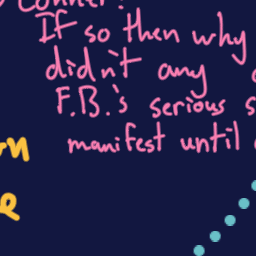 If so then why
didn't any
F.B.'s serious
manifest until